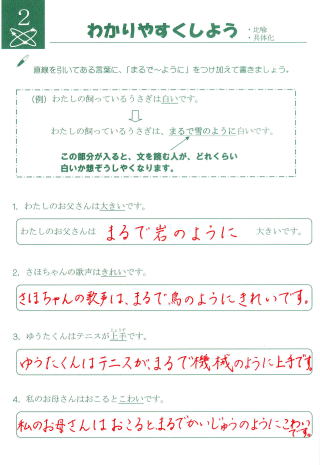 2
わかりやすくしよう
・比喩
・具体化
直線を引いてある言葉に、「まるで〜ように」をつけ加えて書きましょう。
（例）わたしの飼っているうさぎは白いです。
わたしの飼っているうさぎは、まるで雪のように白いです。
この部分が入ると、文を読む人が、どれくらい
白いか想ぞうしやくなります。
1. わたしのお父さんは大きいです。
わたしのお父さんは まるで岩のように 大きいです。
2. さほちゃんの歌声はきれいです。
さほちゃんの歌声は、まるで鳥のようにきれいです。
3. ゆうたくんはテニスが上手です。
ゆうたくんはテニスが、まるで機械のように上手です。
4. 私のお母さんはおこるとこわいです。
私のお母さんはおこると、まるでかいじゅうのようにこわい
です。